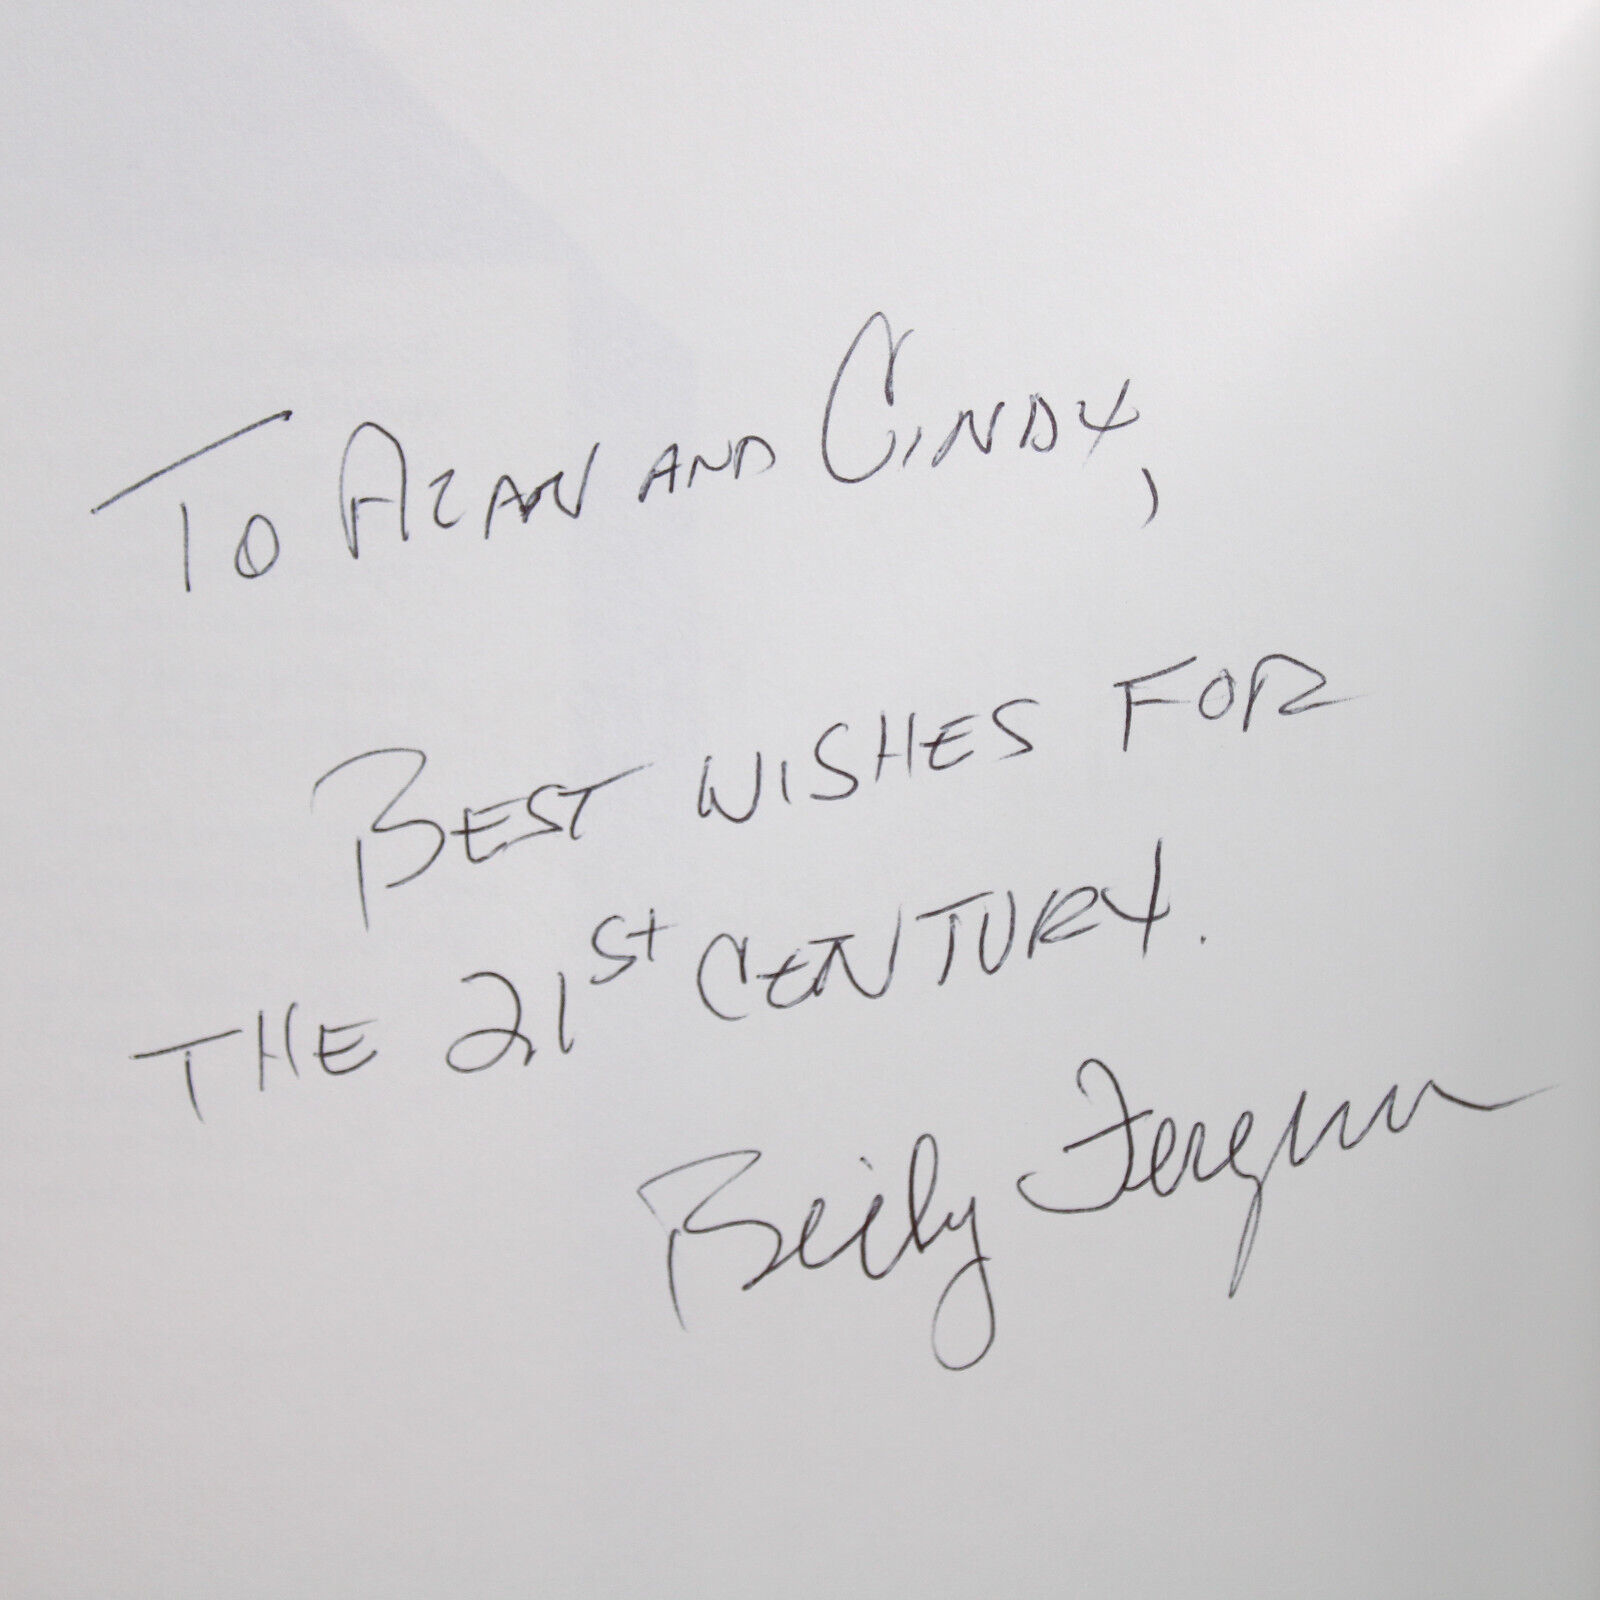 To ALAN AND CINDY,
BEST WISHES FOR
THE 21st CENTURY.
Billy Ferguson